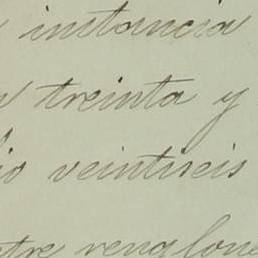 instancia
treinta y
io veintiseis
tre renglone